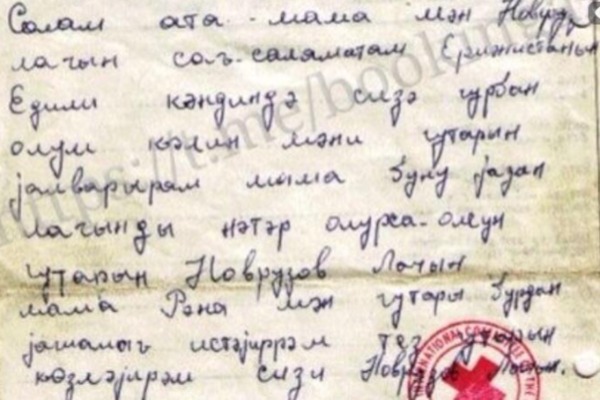 Салам ата-мама мән Новруз
лачын сағ-саламатам Ермәнистанын
Едили кәндиндә сизә гурбан
олум кәлин мәни гутарын
јалварырам мама буну јазан
лачынды нәтәр олурса-олсун
гутарын Новрузов Лачын
мама Рәна мән гутары бурдан
јашамағ истәјиррәм тез гутарын
көзләјирәм сизи Новрузов Лачын.
https://t.me/booking
INTERNATIONAL COMMITTEE OF THE